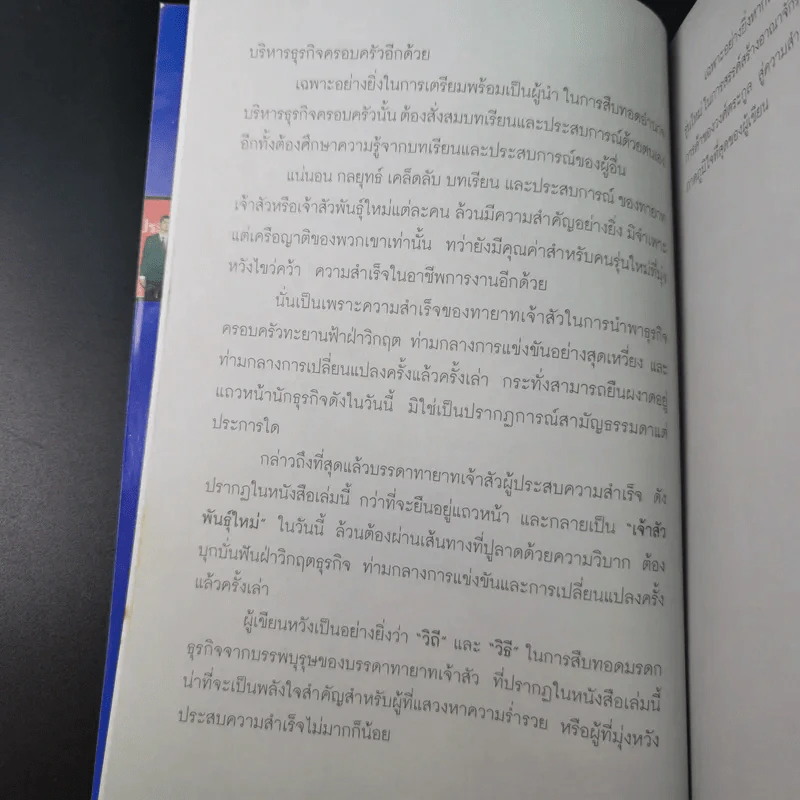 บริหารธุรกิจครอบครัวอีกด้วย
เฉพาะอย่างยิ่งในการเตรียมพร้อมเป็นผู้นำ ในการสืบทอดอำนาจ
บริหารธุรกิจครอบครัวนั้น ต้องสั่งสมบทเรียนและประสบการณ์ด้วยตนเอง
อีกทั้งต้องศึกษาความรู้จากบทเรียนและประสบการณ์ของผู้อื่น
แน่นอน กลยุทธ์ เคล็ดลับ บทเรียน และประสบการณ์ ของทายาท
เจ้าสัวหรือเจ้าสัวพันธุ์ใหม่แต่ละคน ล้วนมีความสำคัญอย่างยิ่ง มิจำเพาะ
แต่เครือญาติของพวกเขาเท่านั้น ทว่ายังมีคุณค่าสำหรับคนรุ่นใหม่ที่มุ่ง
หวังไขว่คว้า ความสำเร็จในอาชีพการงานอีกด้วย
นั่นเป็นเพราะความสำเร็จของทายาทเจ้าสัวในการนำพาธุรกิจ
ครอบครัวทะยานฟ้าฝ่าวิกฤต ท่ามกลางการแข่งขันอย่างสุดเหวี่ยง และ
ท่ามกลางการเปลี่ยนแปลงครั้งแล้วครั้งเล่า กระทั่งสามารถยืนผงาดอยู่
แถวหน้านักธุรกิจดังในวันนี้ มิใช่เป็นปรากฏการณ์สามัญธรรมดาแต่
ประการใด
กล่าวถึงที่สุดแล้วบรรดาทายาทเจ้าสัวผู้ประสบความสำเร็จ ดัง
ปรากฏในหนังสือเล่มนี้ กว่าที่จะยืนอยู่แถวหน้า และกลายเป็น "เจ้าสัว
พันธุ์ใหม่" ในวันนี้ ล้วนต้องผ่านเส้นทางที่ปูลาดด้วยความวิบาก ต้อง
บุกบั่นฟันฝ่าวิกฤตธุรกิจ ท่ามกลางการแข่งขันและการเปลี่ยนแปลงครั้ง
แล้วครั้งเล่า
ผู้เขียนหวังเป็นอย่างยิ่งว่า "วิถี" และ "วิธี" ในการสืบทอดมรดก
ธุรกิจจากบรรพบุรุษของบรรดาทายาทเจ้าสัว ที่ปรากฏในหนังสือเล่มนี้
น่าที่จะเป็นพลังใจสำคัญสำหรับผู้ที่แสวงหาความร่ำรวย หรือผู้ที่มุ่งหวัง
ประสบความสำเร็จไม่มากก็น้อย
เฉพาะอย่างยิ่งหาก
รุ่นใหม่ ในการสรรค์สร้างอาณาจักร
การค้าของวงศ์ตระกูล สู่ความสำ
ภาคภูมิใจที่สุดของผู้เขียน